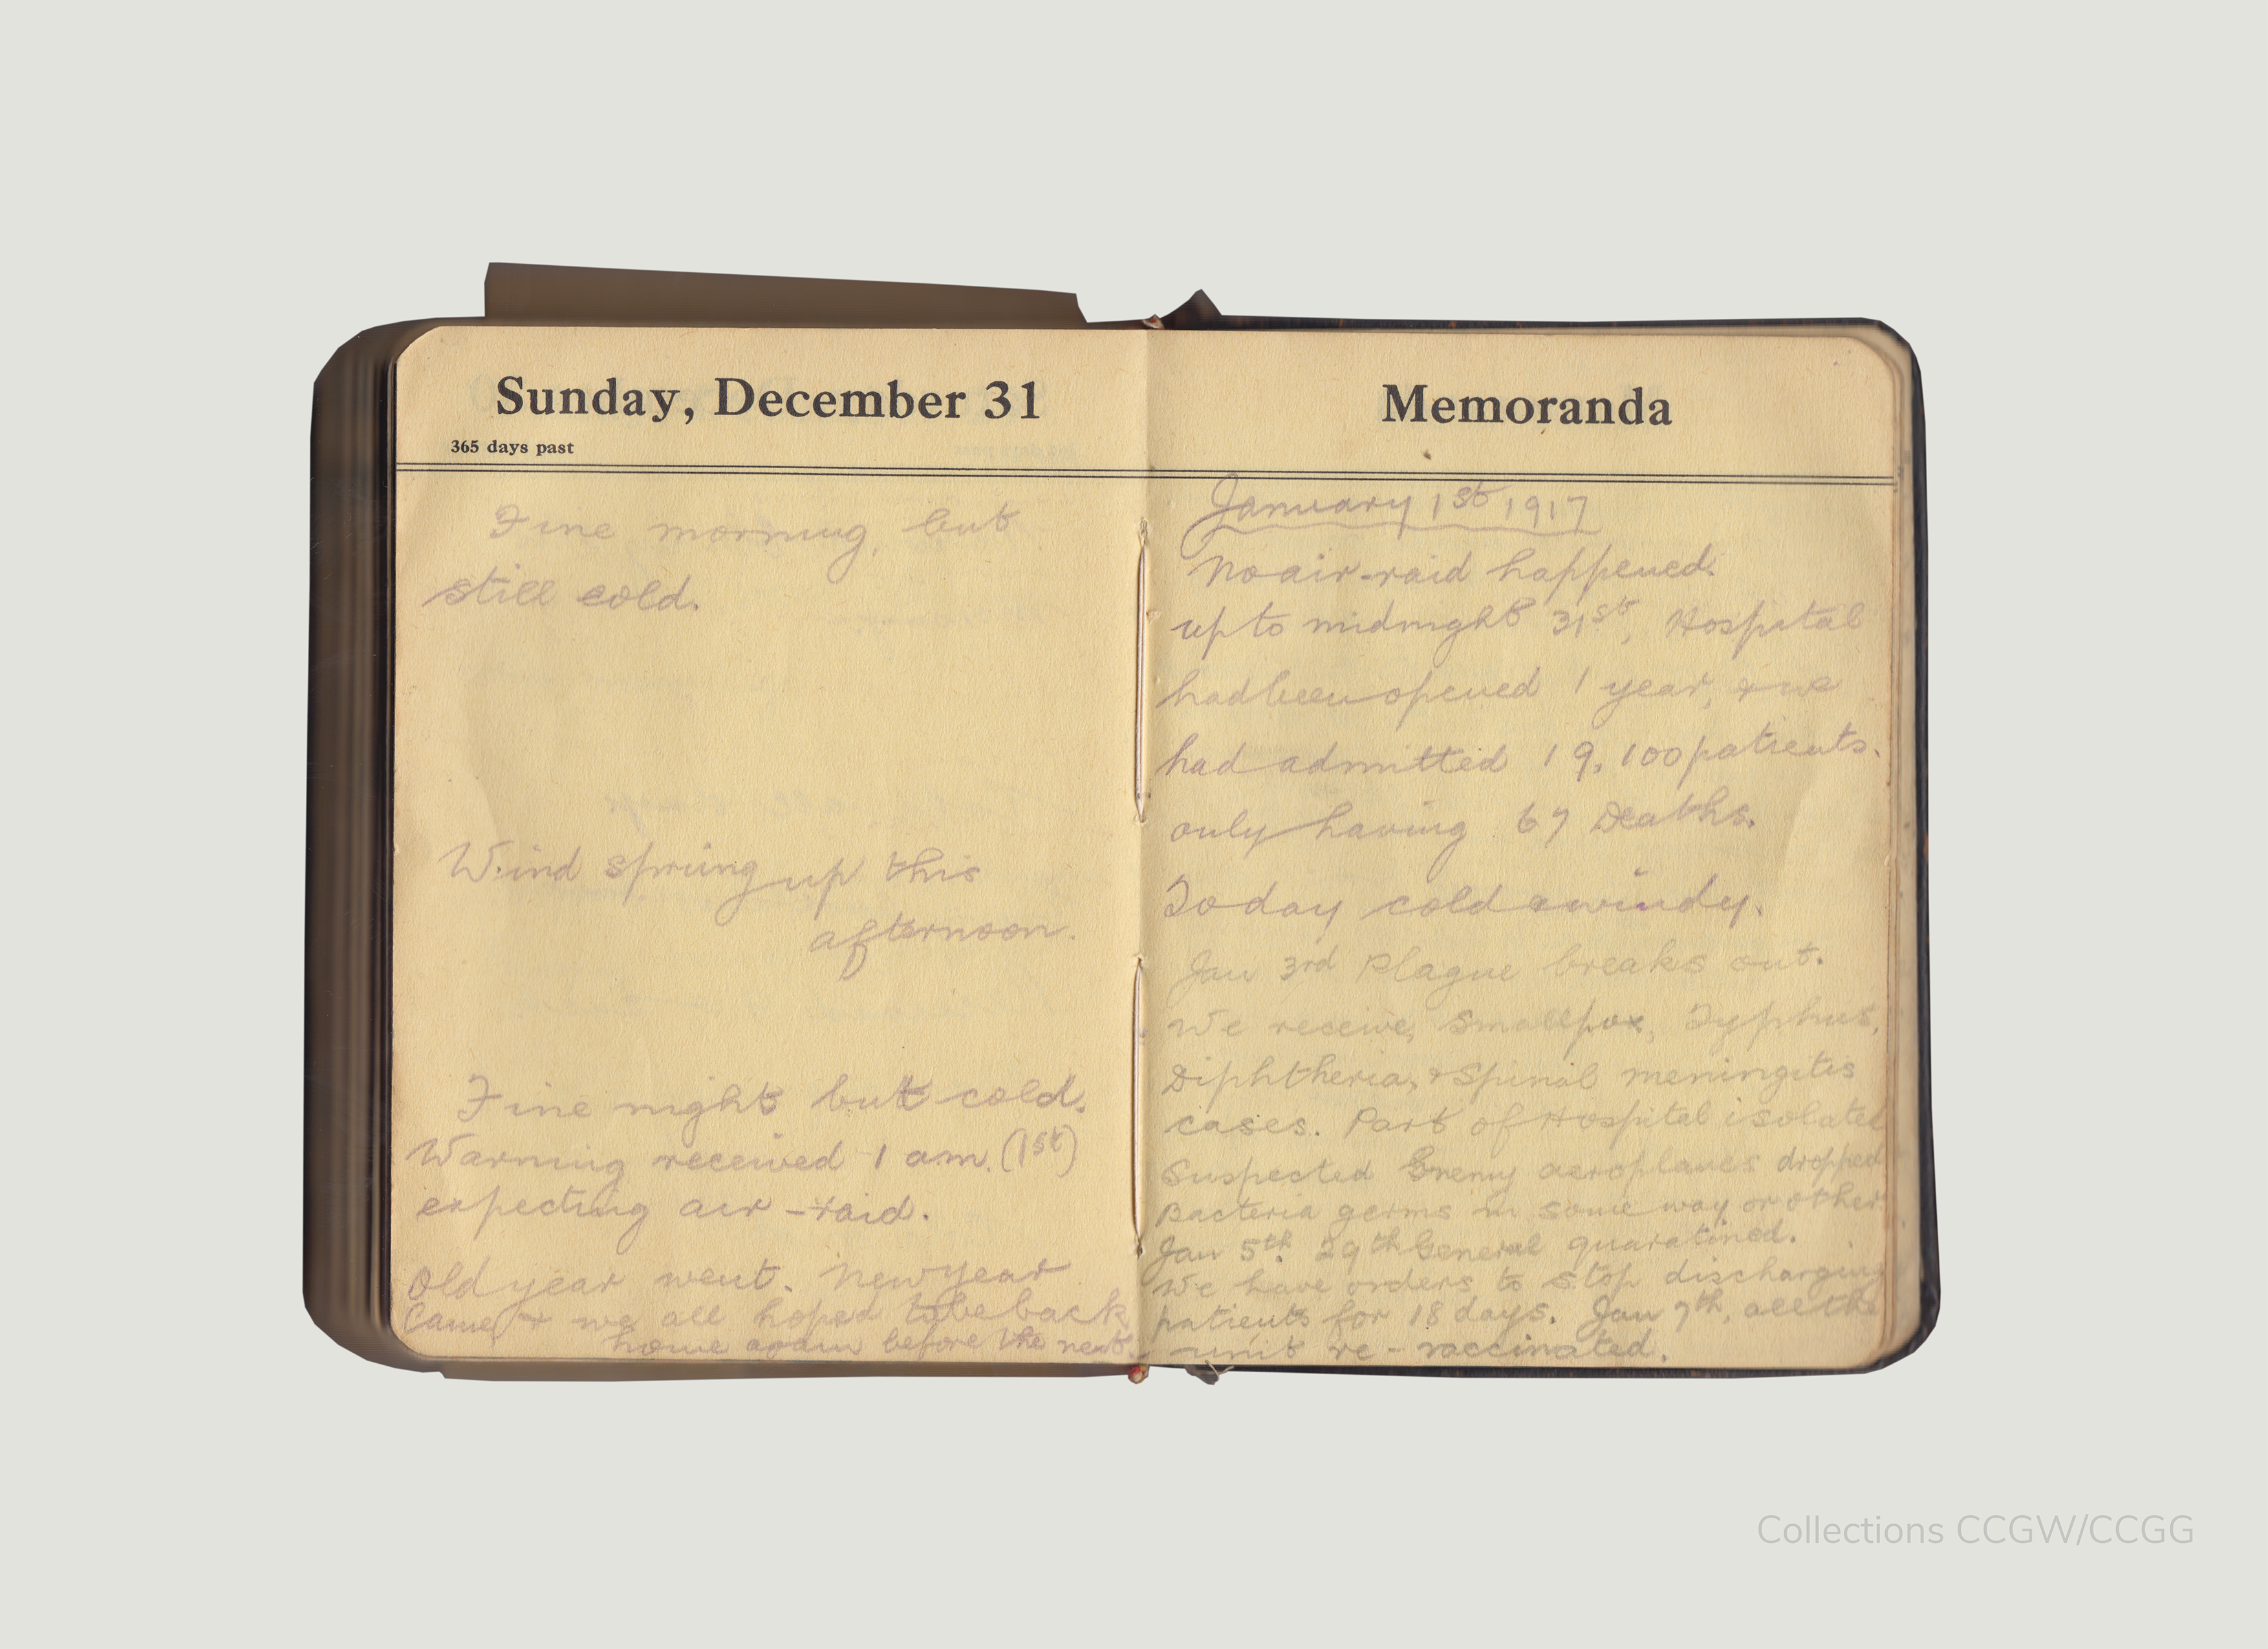 Sunday, December 31
365 days past
Fine morning, but
still cold.
Wind spring up this
afternoon.
Fine night but cold.
Warning received 1 a.m. (1st)
expecting air-raid.
Old year went. New year
Came, & we all hoped to be back
home again before the next.
Memoranda
January 1st 1917
No air-raid happened.
up to midnight 31st, Hospital
had been opened 1 year, & we
had admitted 19,100 patients.
only having 67 Deaths.
Today cold & windy.
Jan 3rd Plague breaks out.
We receive, Smallpox, Typhus,
Diphtheria, & Spinal meningitis
cases. Part of Hospital isolated
Suspected Enemy aeroplanes dropped
Bacteria germs in some way or other.
Jan 5th. 29th General quaratined.
We have orders to stop discharging
patients for 18 days. Jan 7th, all the
unit re-vaccinated.
Collections CCGW/CCGG